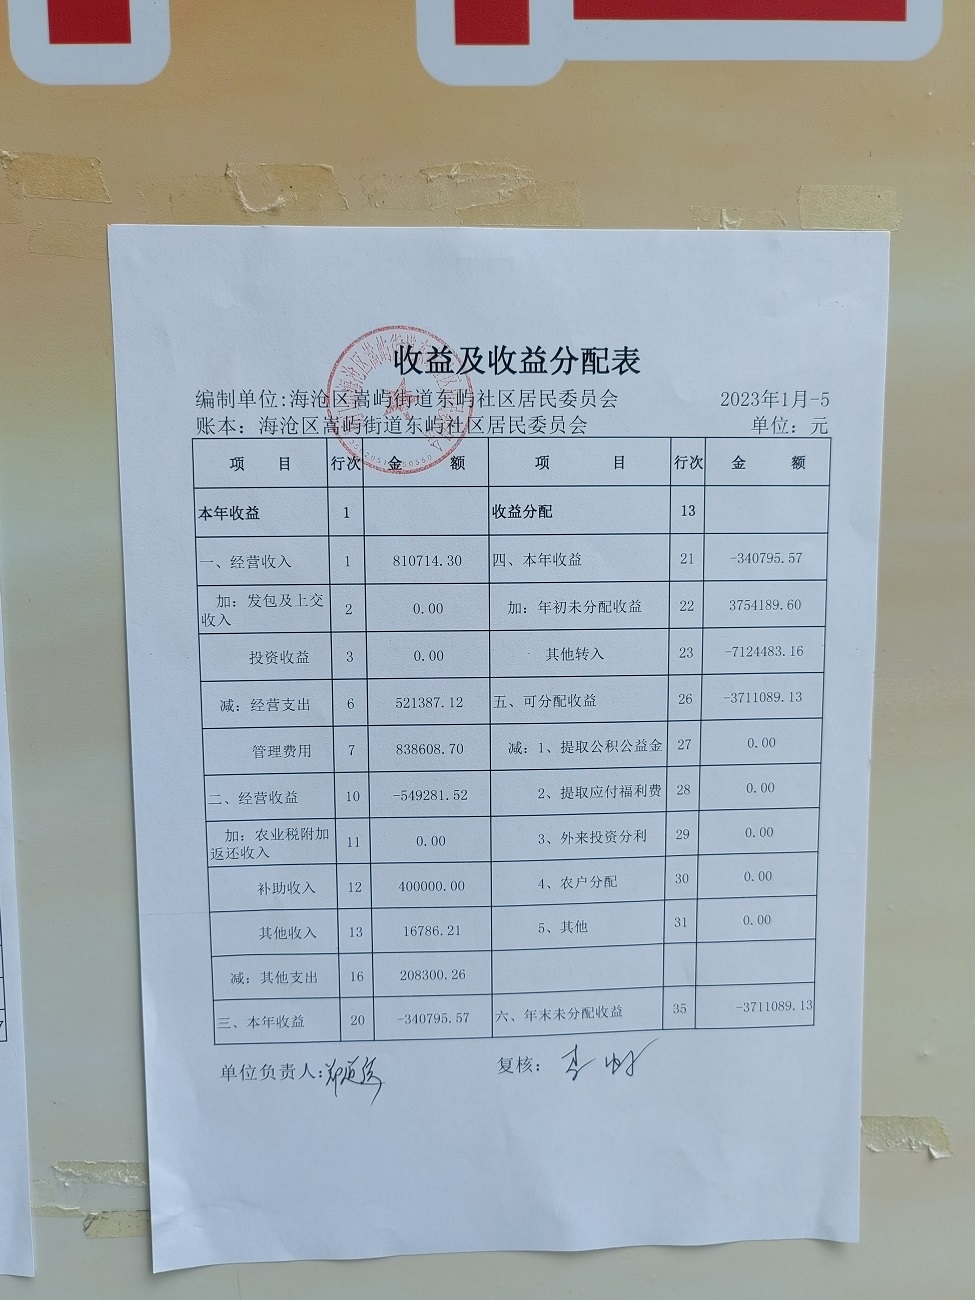 收益及收益分配表
编制单位:海沧区嵩屿街道东屿社区居民委员会 2023年1月-5
账本：海沧区嵩屿街道东屿社区居民委员会 单位：元
项 目 行次 金 额 项 目 行次 金 额
本年收益 1 收益分配 13
一、经营收入 1 810714.30 四、本年收益 21 -340795.57
加：发包及上交
收入 2 0.00 加：年初未分配收益 22 3754189.60
投资收益 3 0.00 其他转入 23 -7124483.16
减：经营支出 6 521387.12 五、可分配收益 26 -3711089.13
管理费用 7 838608.70 减：1、提取公积公益金 27 0.00
二、经营收益 10 -549281.52 2、提取应付福利费 28 0.00
加：农业税附加
返还收入 11 0.00 3、外来投资分利 29 0.00
补助收入 12 400000.00 4、农户分配 30 0.00
其他收入 13 16786.21 5、其他 31 0.00
减：其他支出 16 208300.26
三、本年收益 20 -340795.57 六、年末未分配收益 35 -3711089.13
单位负责人: 复核：